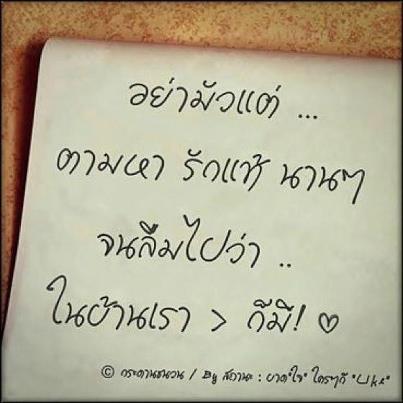 อย่ามัวแต่ ...
ตามหา รักแท้ นานๆ
จนลืมไปว่า ..
ในบ้านเรา > ก็มี! ♡
© กระดานชนวน / By สถานะ : ขาด"ใจ" ใครๆก็ "Like"